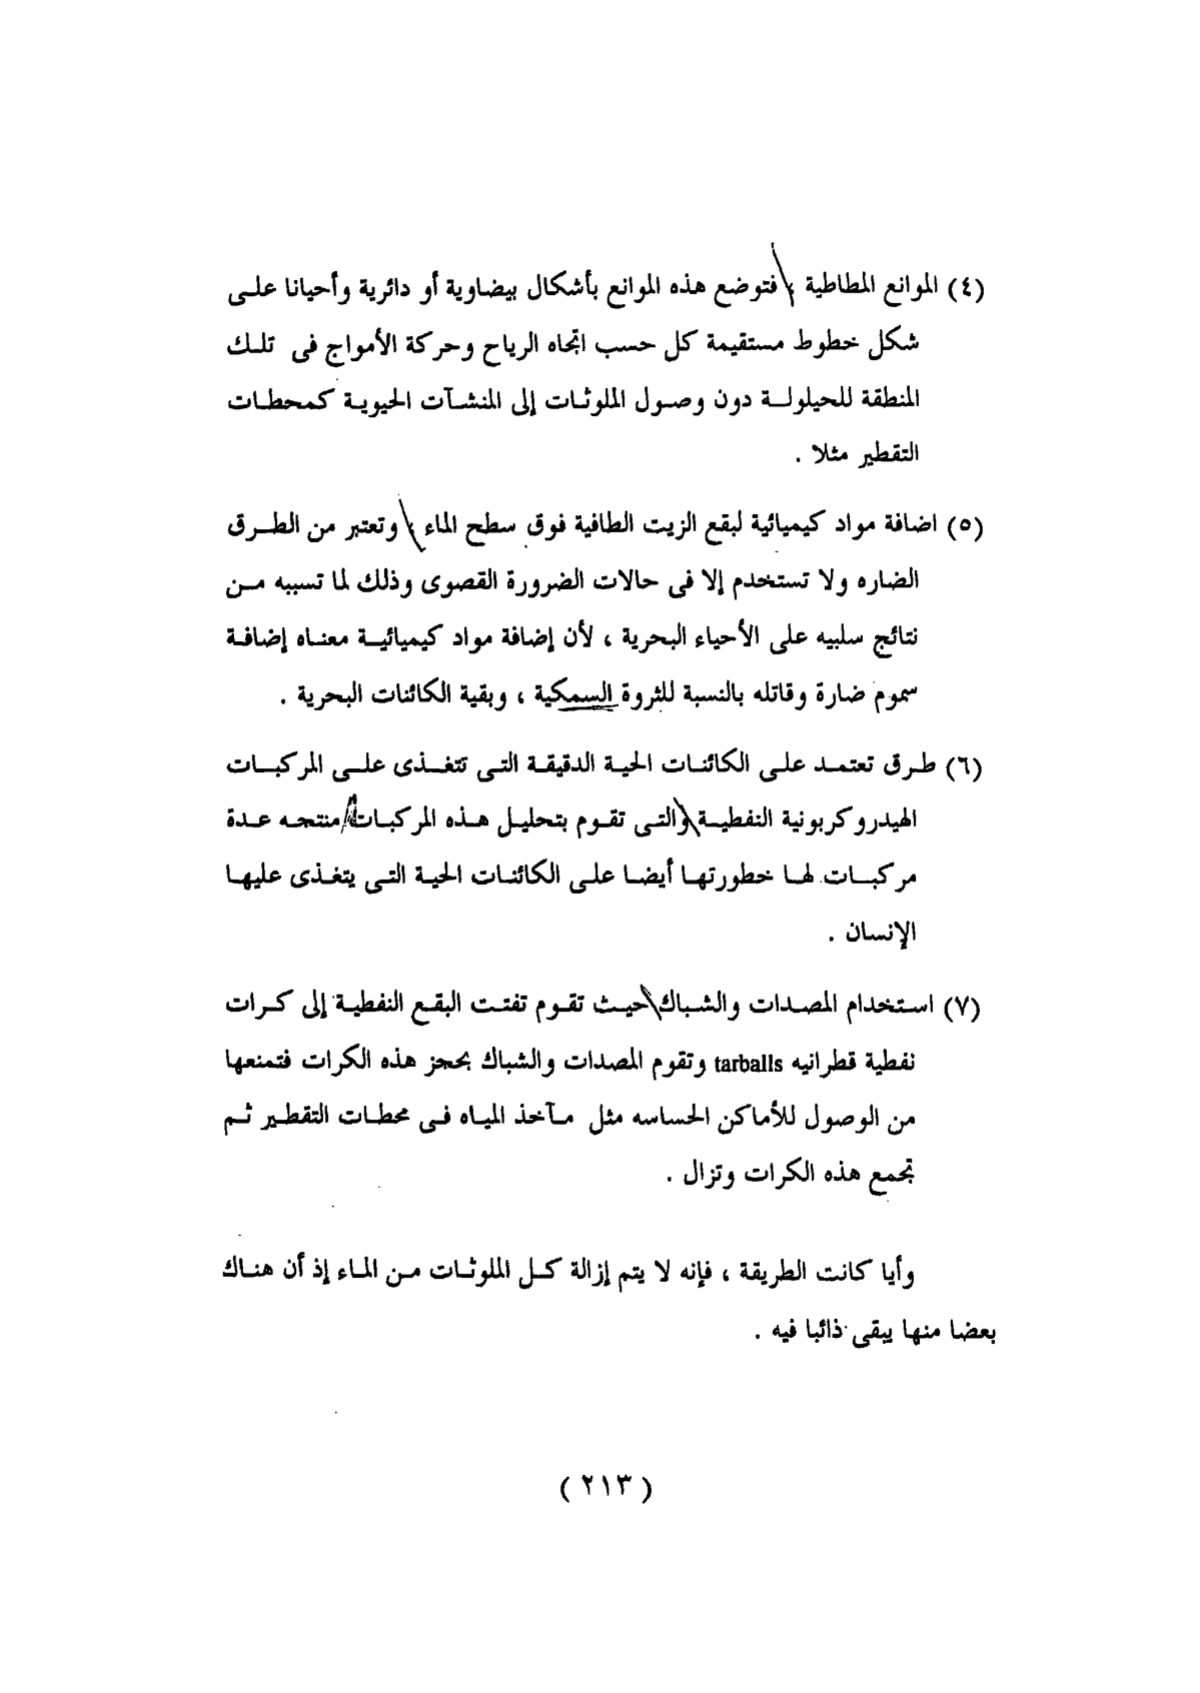 (٤) الموانع المطاطية ، فتوضع هذه الموانع بأشكال بيضاوية أو دائرية وأحيانا على
شكل خطوط مستقيمة كل حسب اتجاه الرياح وحركة الأمواج فى تلك
المنطقة للحيلولة دون وصول الملوثات إلى المنشآت الحيوية كمحطات
التقطير مثلا .
(٥) اضافة مواد كيميائية لبقع الزيت الطافية فوق سطح الماء ، وتعتبر من الطرق
الضاره ولا تستخدم إلا فى حالات الضرورة القصوى وذلك لما تسببه من
نتائج سلبيه على الأحياء البحرية ، لأن إضافة مواد كيميائية معناه إضافة
سموم ضارة وقاتله بالنسبة للثروة السمكية ، وبقية الكائنات البحرية .
(٦) طرق تعتمد على الكائنات الحية الدقيقة التى تتغذى على المركبات
الهيدروكربونية النفطية والتى تقوم بتحليل هذه المركبات منتجه عدة
مركبات لها خطورتها أيضا على الكائنات الحية التى يتغذى عليها
الإنسان .
(٧) استخدام المصدات والشباك حيث تقوم تفتت البقع النفطية إلى كرات
نفطية قطرانيه tarballs وتقوم المصدات والشباك بحجز هذه الكرات فتمنعها
من الوصول للأماكن الحساسه مثل مآخذ المياه فى محطات التقطير ثم
تجمع هذه الكرات وتزال .
وأيا كانت الطريقة ، فإنه لا يتم إزالة كل الملوثات من الماء إذ أن هناك
بعضا منها يبقى ذائبا فيه .
( ٢١٣ )